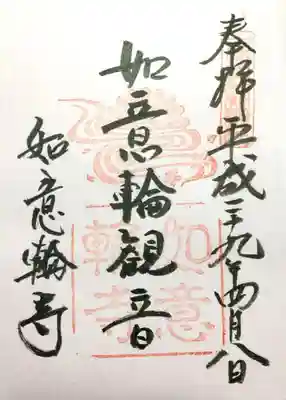 奉拝 平成二九年四月八日
如意輪観音
如意輪寺
如意
輪寺